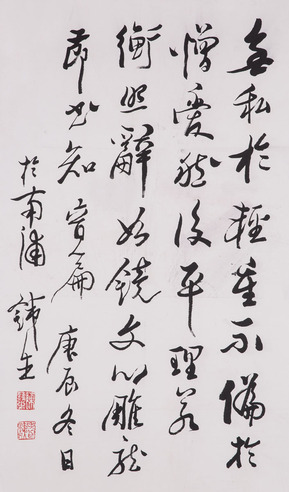 無私於輕重不偏於
憎愛然後平理若
衡照辭如鏡文心雕龍
節書知音篇 庚辰冬日
於南浦 鍏生